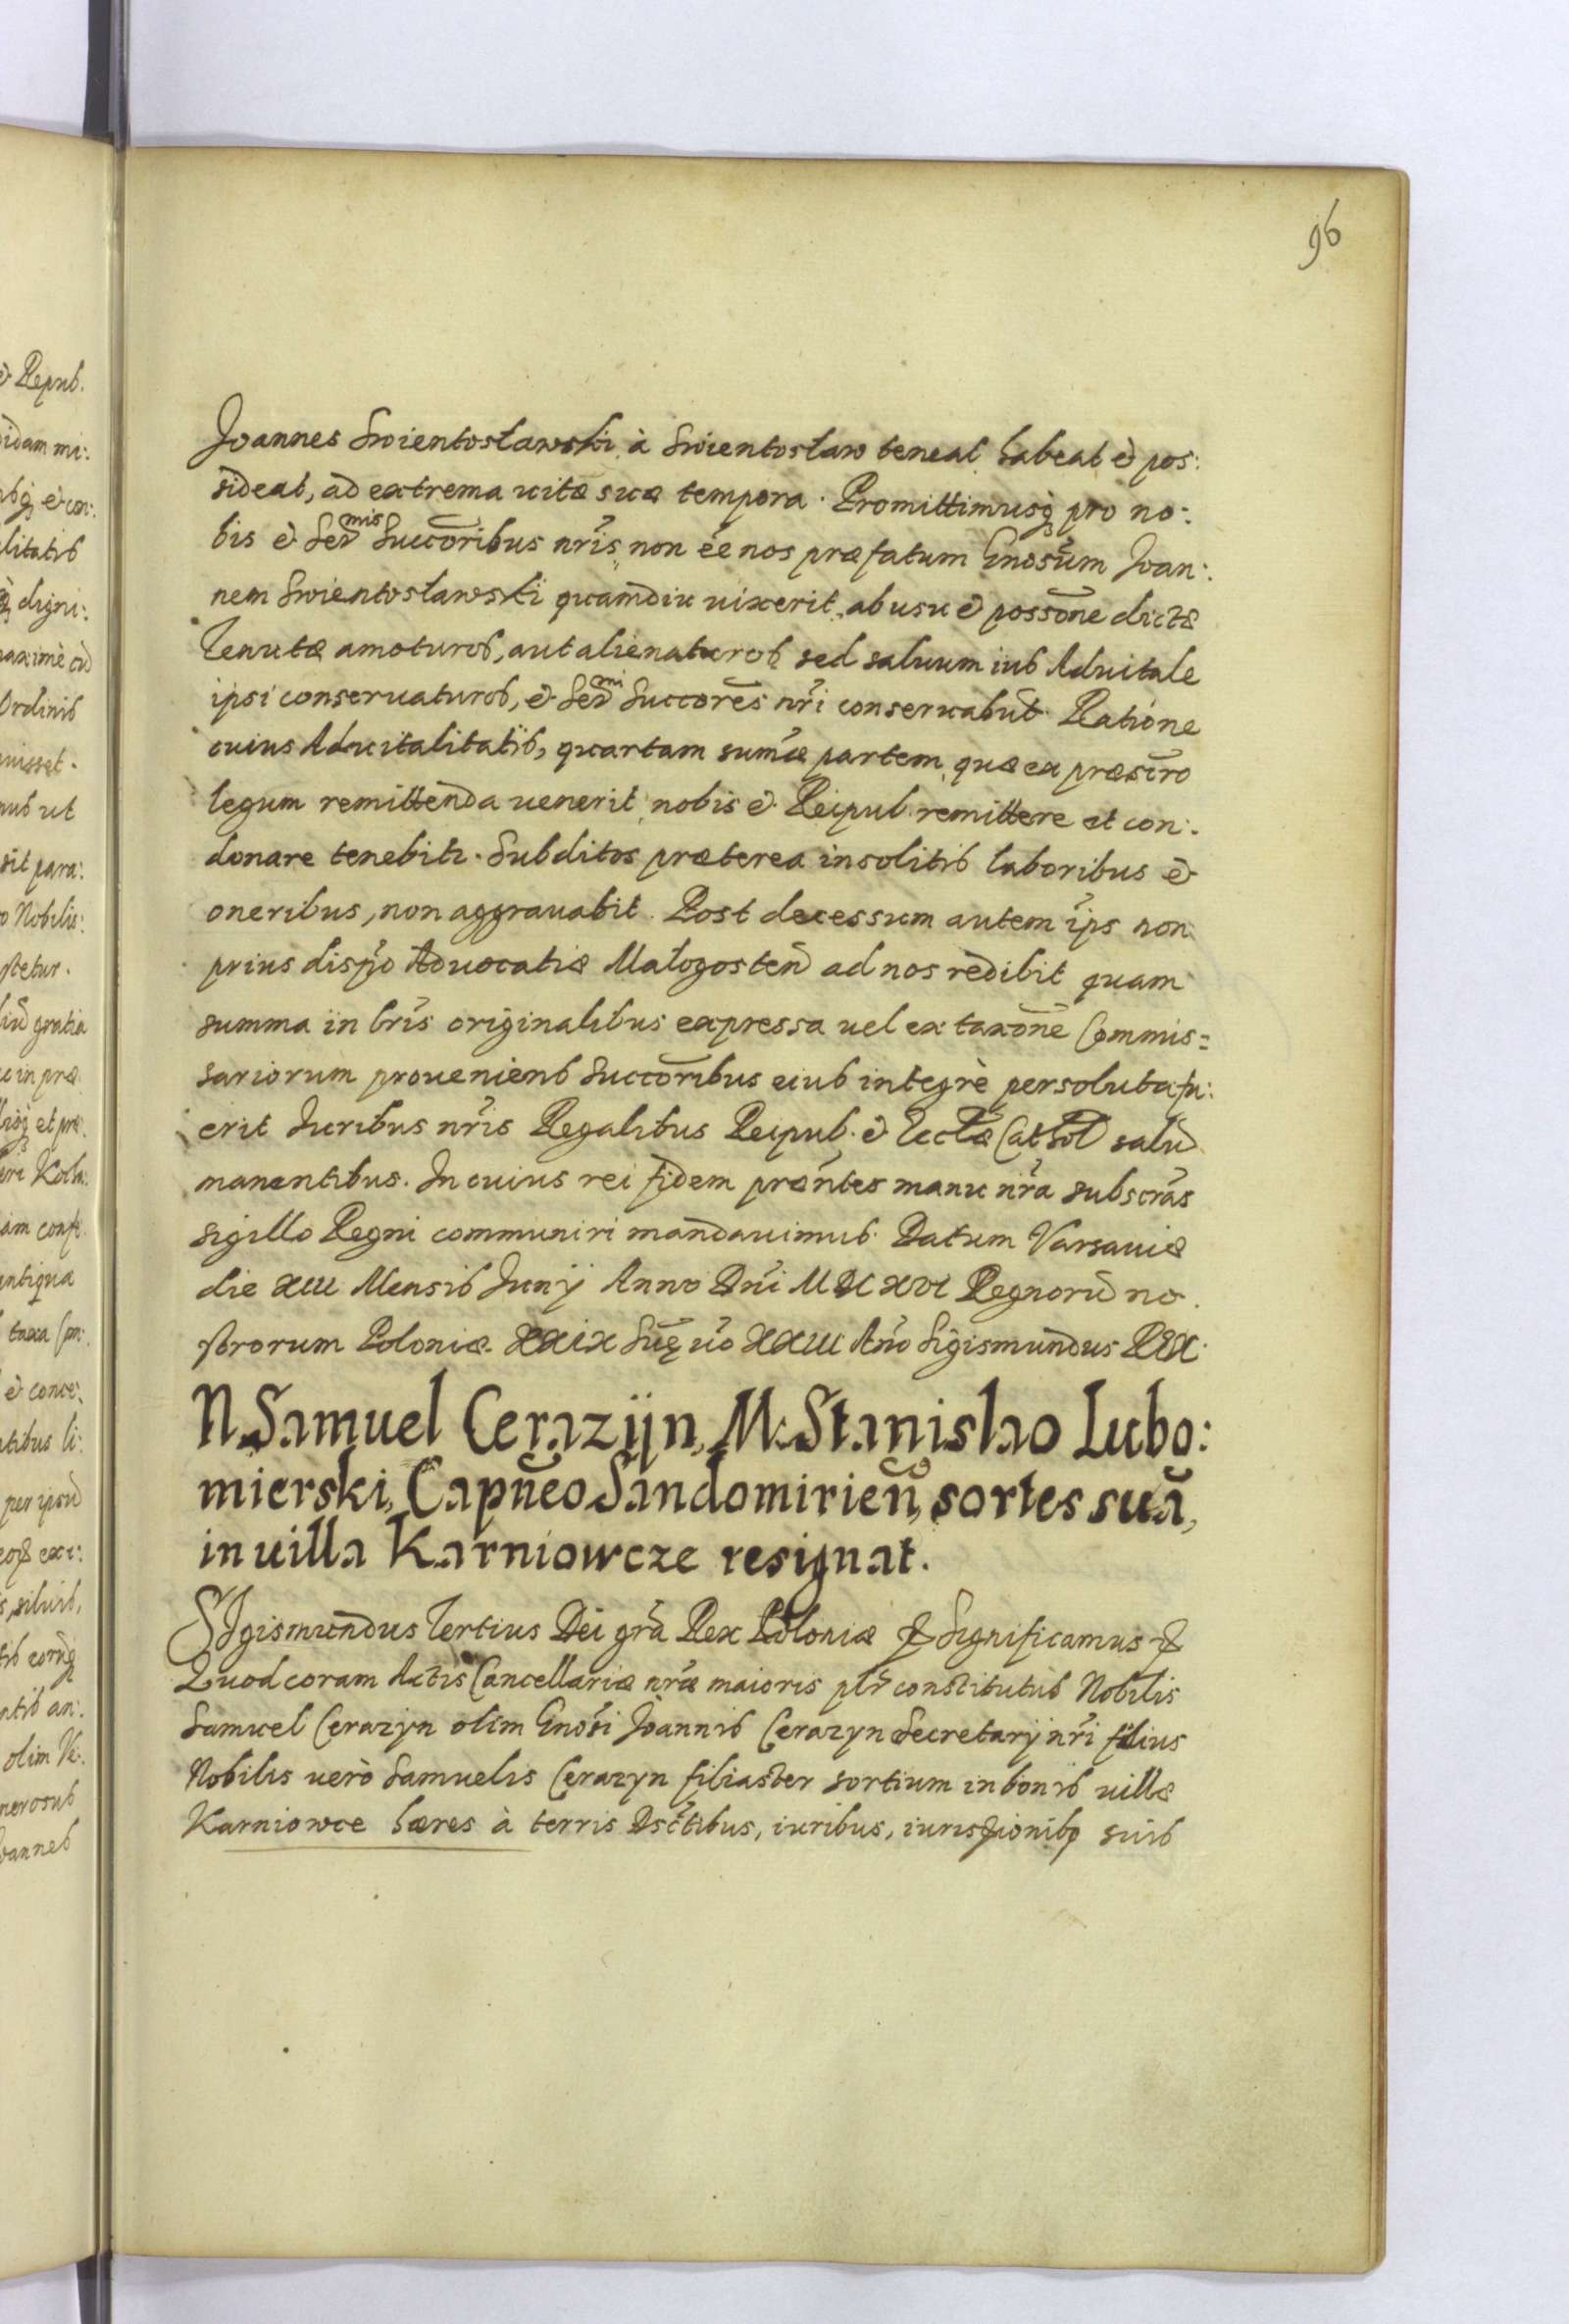 96
Joannes Swientosławski à Swientosław teneat habeat & pos:
sideat, ad extrema uitæ suæ tempora. Promittimusq pro no:
bis & Ser^mis Succoribus nris, non ee nos præfatum Gnosum Joan:
nem Swientosławski quamdiu uixerit, ab usu & possone dictæ
Tenutæ amoturos, aut alienaturos, sed saluum ius Aduitale
ipsi conseruaturos, & Ser^mi Succores nri conseruabut. Ratione
cuius Aduitalitatis, quartam sumæ partem, quæ ex præscro
legum remittenda uenerit, nobis & Reipub. remittere et con:
donare tenebitr. Subditos præterea insolitis laboribus &
oneribus, non aggrauabit. Post decessum autem ips non
prius dispo Aduocatiæ Małogosten ad nos redibit quam
summa in lris originalibus expressa uel ex taxone Commis=
sariorum proueniens Succoribus eius integrè persoluta fu:
erit Juribus nris Regalibus Reipub. & Ecclæ Cathol saluis
manentibus. In cuius rei fidem præntes manu nra subscras
sigillo Regni communiri mandauimus. Datum Varsauiæ
die XIII Mensis Junij Anno Dni MDCXVI Regnoru no
strorum Poloniæ XXIX Sueq uo XXIII Ano Sigismundus REX.
N. Samuel Cerazijn, M: Stanislao Lubo:
mierski, Capneo Sandomirien, sortes sua,
in uilla Karniowcze resignat.
SIgismundus Tertius Dei gra Rex Poloniæ & Significamus &
Quod coram Actis Cancellariæ nræ maioris plr constitutus Nobilis
Samuel Cerazyn olim Gnosi Joannis Cerazyn Secretarij nri filius
Nobilis uerò Samuelis Cerazyn filiaster sortium in bonis uillæ
Karniowce hæres à terris Dsctibus, iuribus, iurisdionibq suis